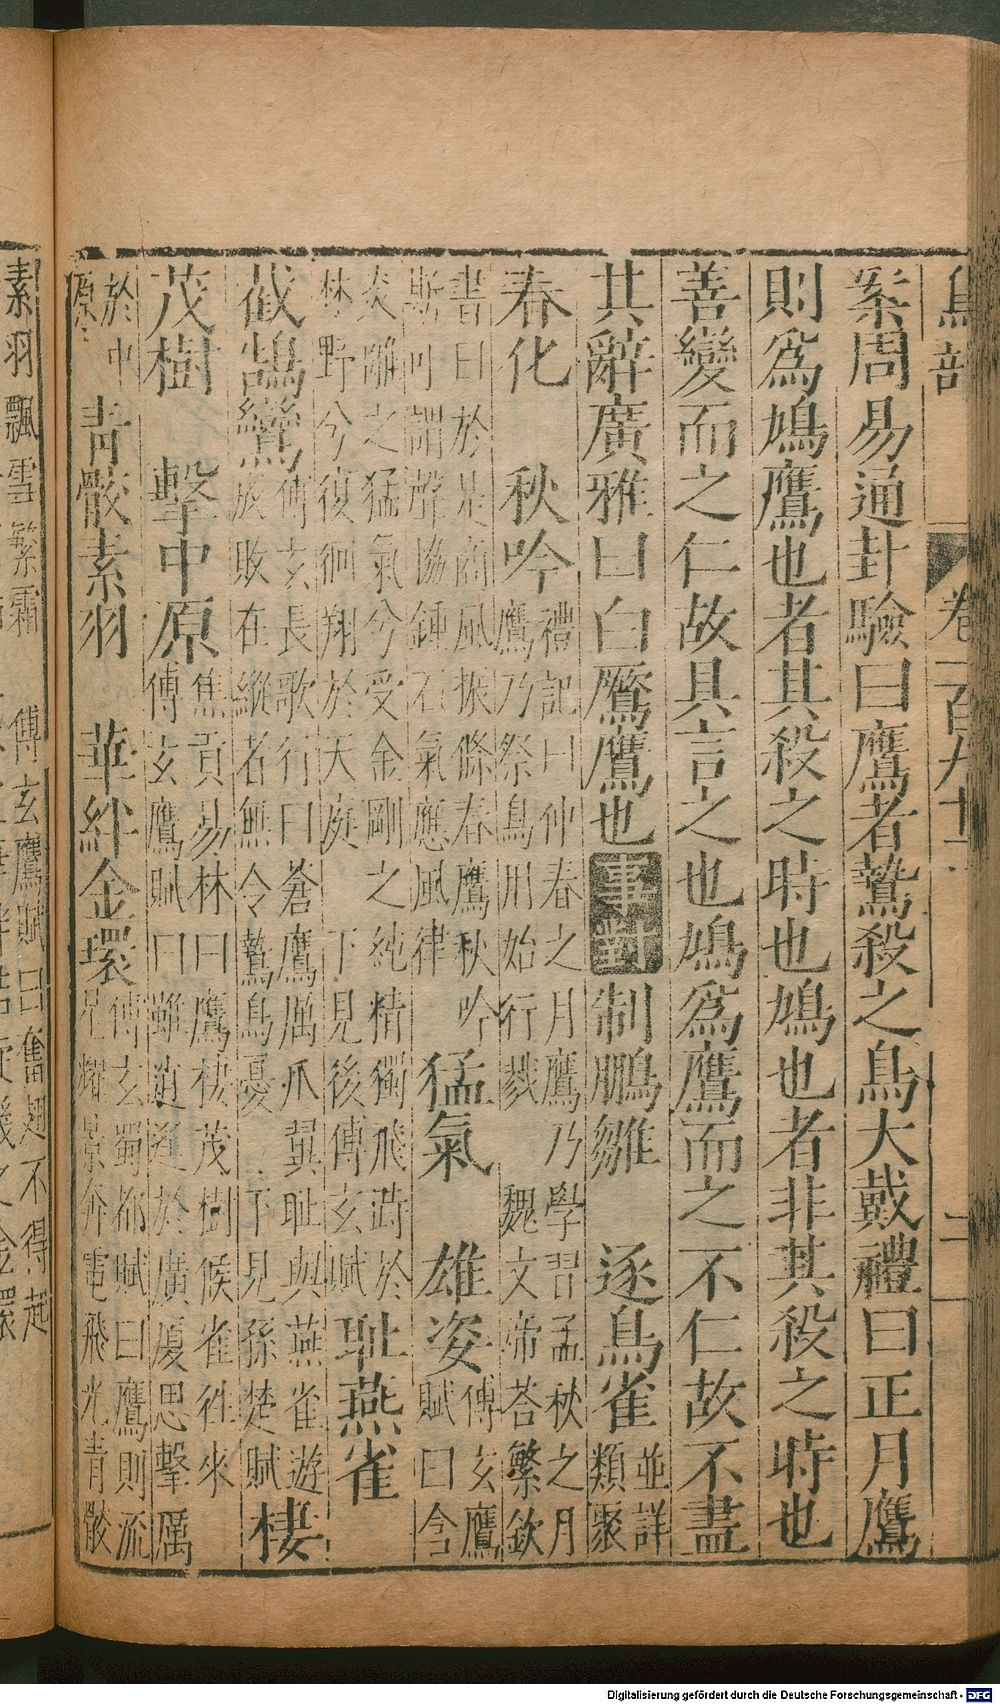 鳥部 卷一百九十一 二
案周易通卦驗曰鷹者鷙殺之鳥大戴禮曰正月鷹
則爲鳩鷹也者其殺之時也鳩也者非其殺之時也
善變而之仁故具言之也鳩爲鷹而之不仁故不盡
其辭廣雅曰白鷹鷹也 事對 制鵬雛 逐鳥雀 並詳
類聚
春化 秋吟 禮記曰仲春之月鷹乃學習孟秋之月
鷹乃祭鳥用始行戮 魏文帝荅繁欽
書曰於是商風振條春鷹秋吟
斯可謂聲協鍾石氣應風律 猛氣 雄姿 傅玄鷹
賦曰含
炎離之猛氣兮受金剛之純精獨飛跱於
林野兮復徊翔於天庭 下見後傅玄賦 耻燕雀
截鵠鸞 傅玄長歌行曰蒼鷹厲爪翼耻與燕雀遊
成敗在縱者無令鷙鳥憂 下見孫楚賦 棲
茂樹 擊中原 焦貢易林曰鷹棲茂樹候雀往來
傅玄鷹賦曰雖逍遙於廣廈思擊厲
於中
原 青骹素羽 華絆金環 傅玄蜀都賦曰鷹則流
星耀景奔電飛光青骹
素羽飄雪繁霜 傅玄鷹賦曰奮翅不得起
Digitalisierung gefördert durch die Deutsche Forschungsgemeinschaft - DFG